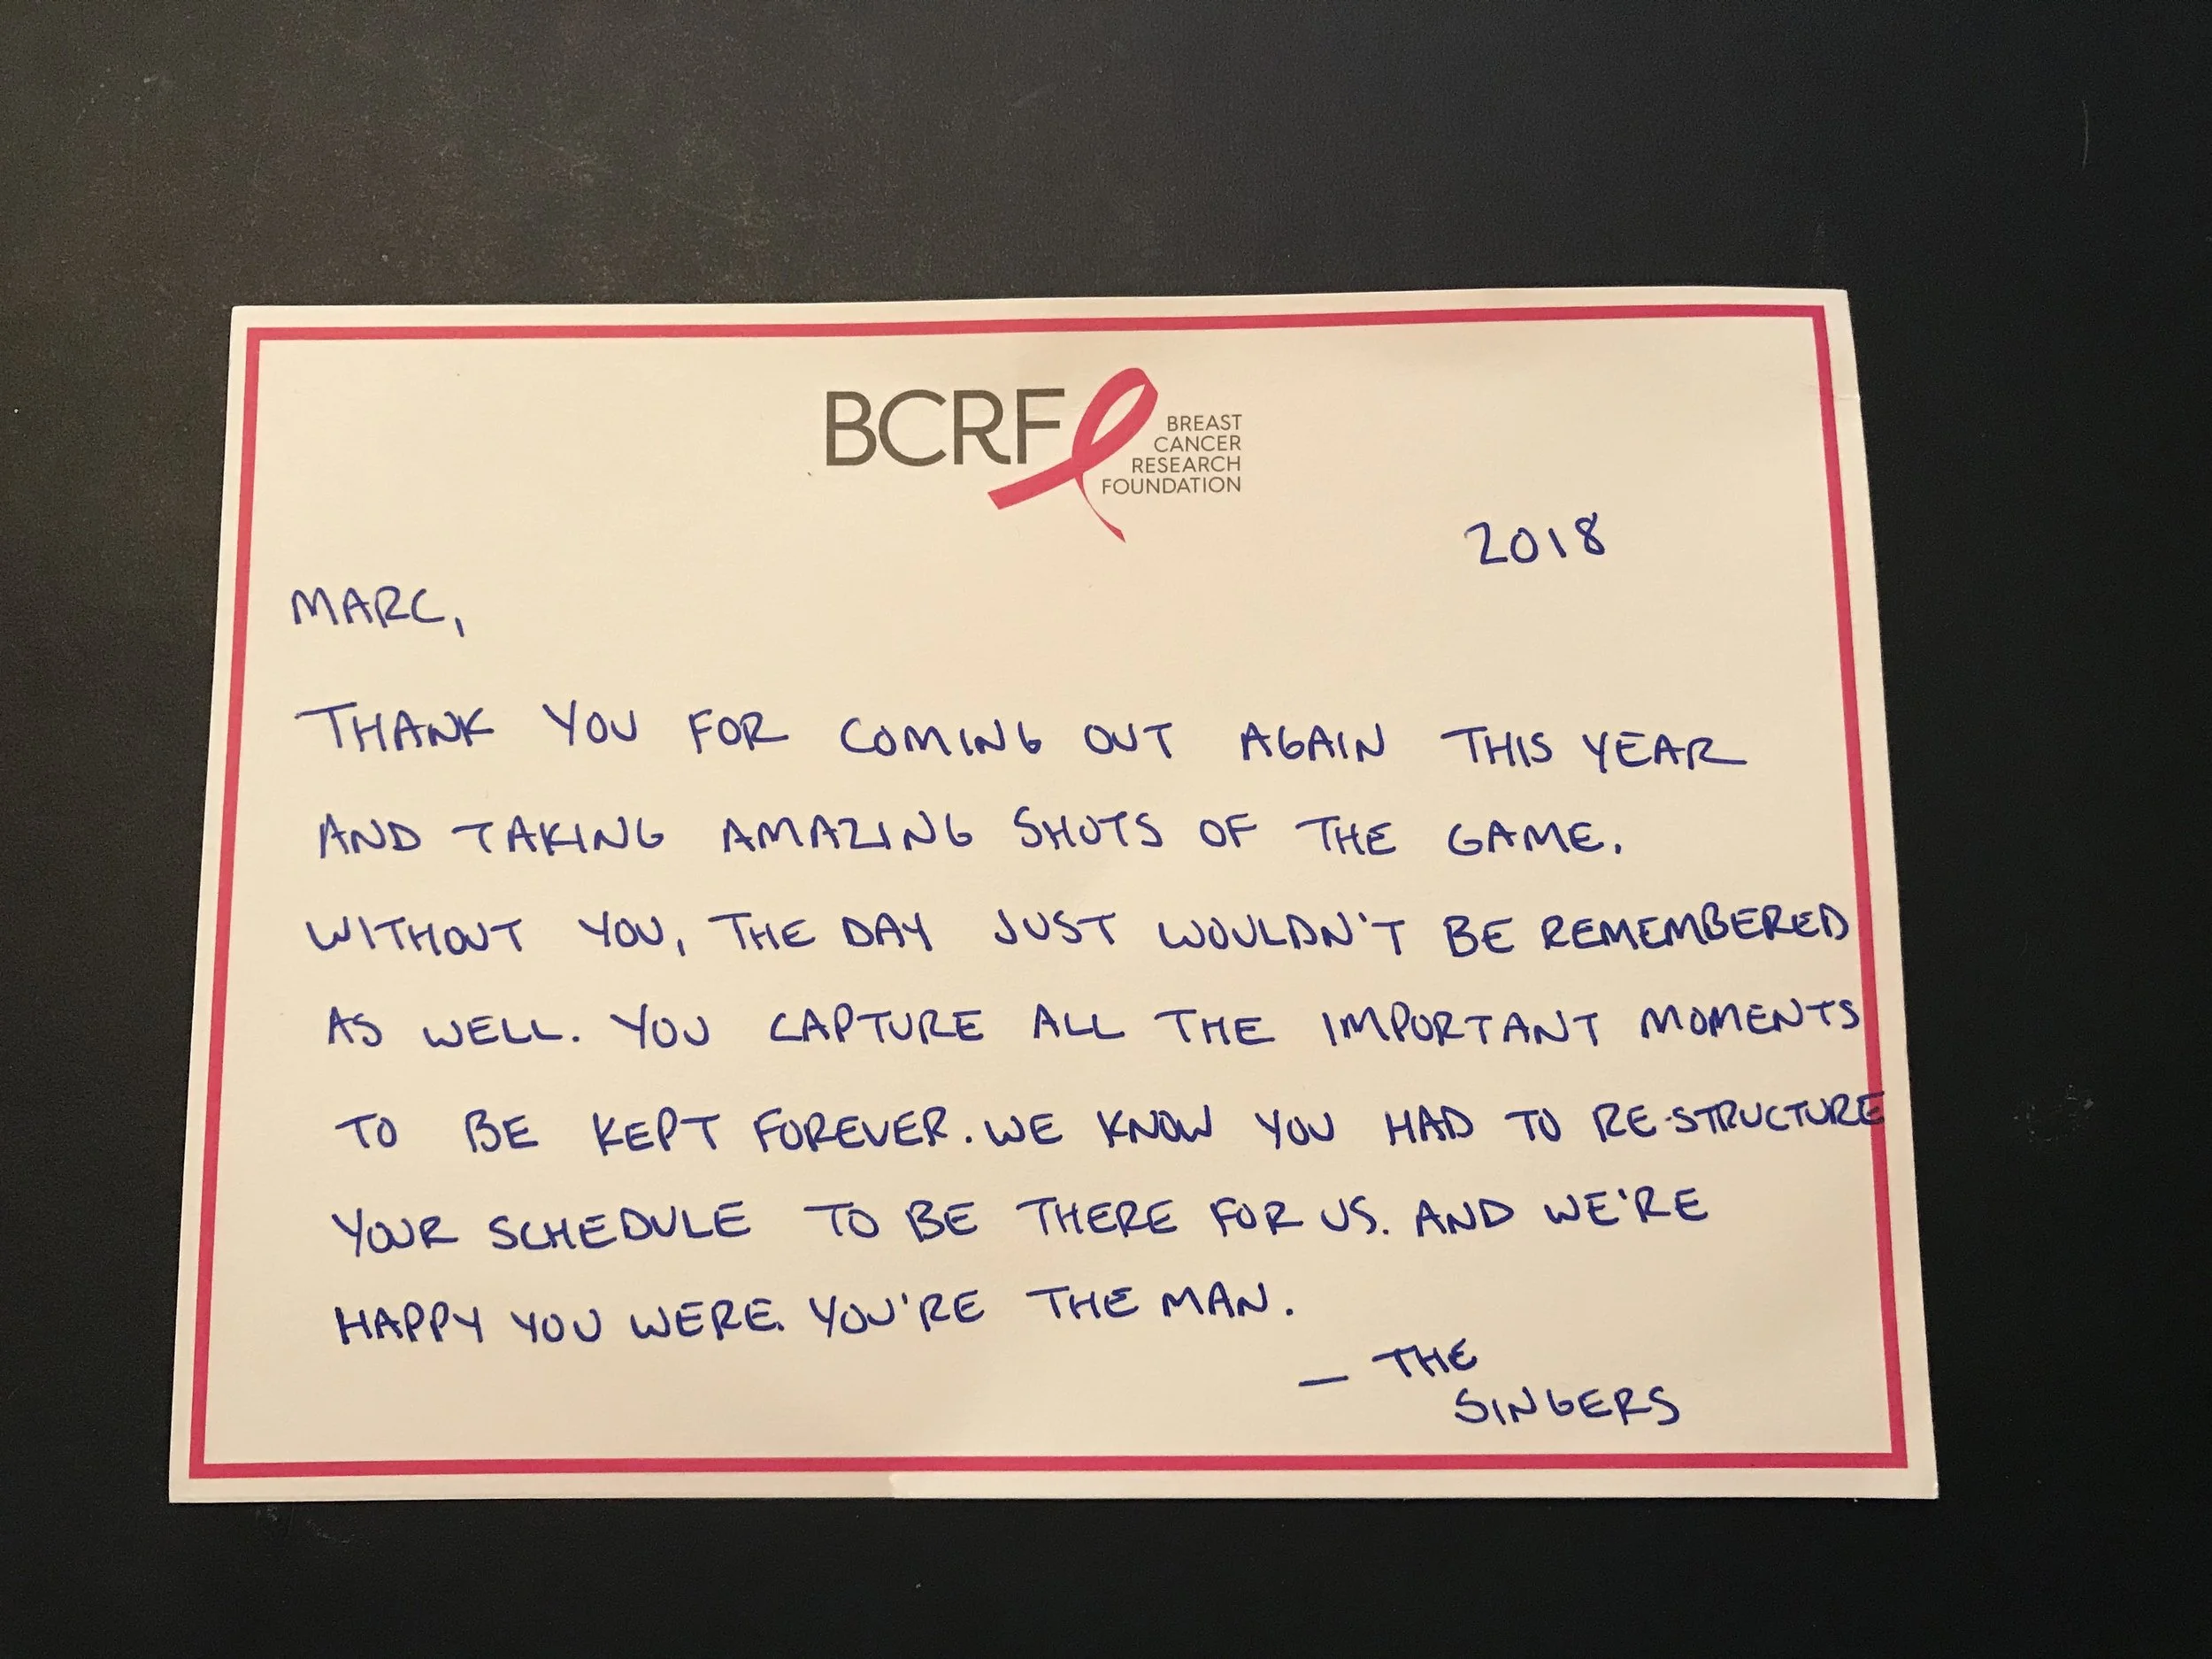 BCRF
BREAST
CANCER
RESEARCH
FOUNDATION
2018
MARC,
THANK YOU FOR COMING OUT AGAIN THIS YEAR
AND TAKING AMAZING SHOTS OF THE GAME.
WITHOUT YOU, THE DAY JUST WOULDN'T BE REMEMBERED
AS WELL. YOU CAPTURE ALL THE IMPORTANT MOMENTS
TO BE KEPT FOREVER. WE KNOW YOU HAD TO RE-STRUCTURE
YOUR SCHEDULE TO BE THERE FOR US. AND WE'RE
HAPPY YOU WERE. YOU'RE THE MAN.
— THE
SINGERS